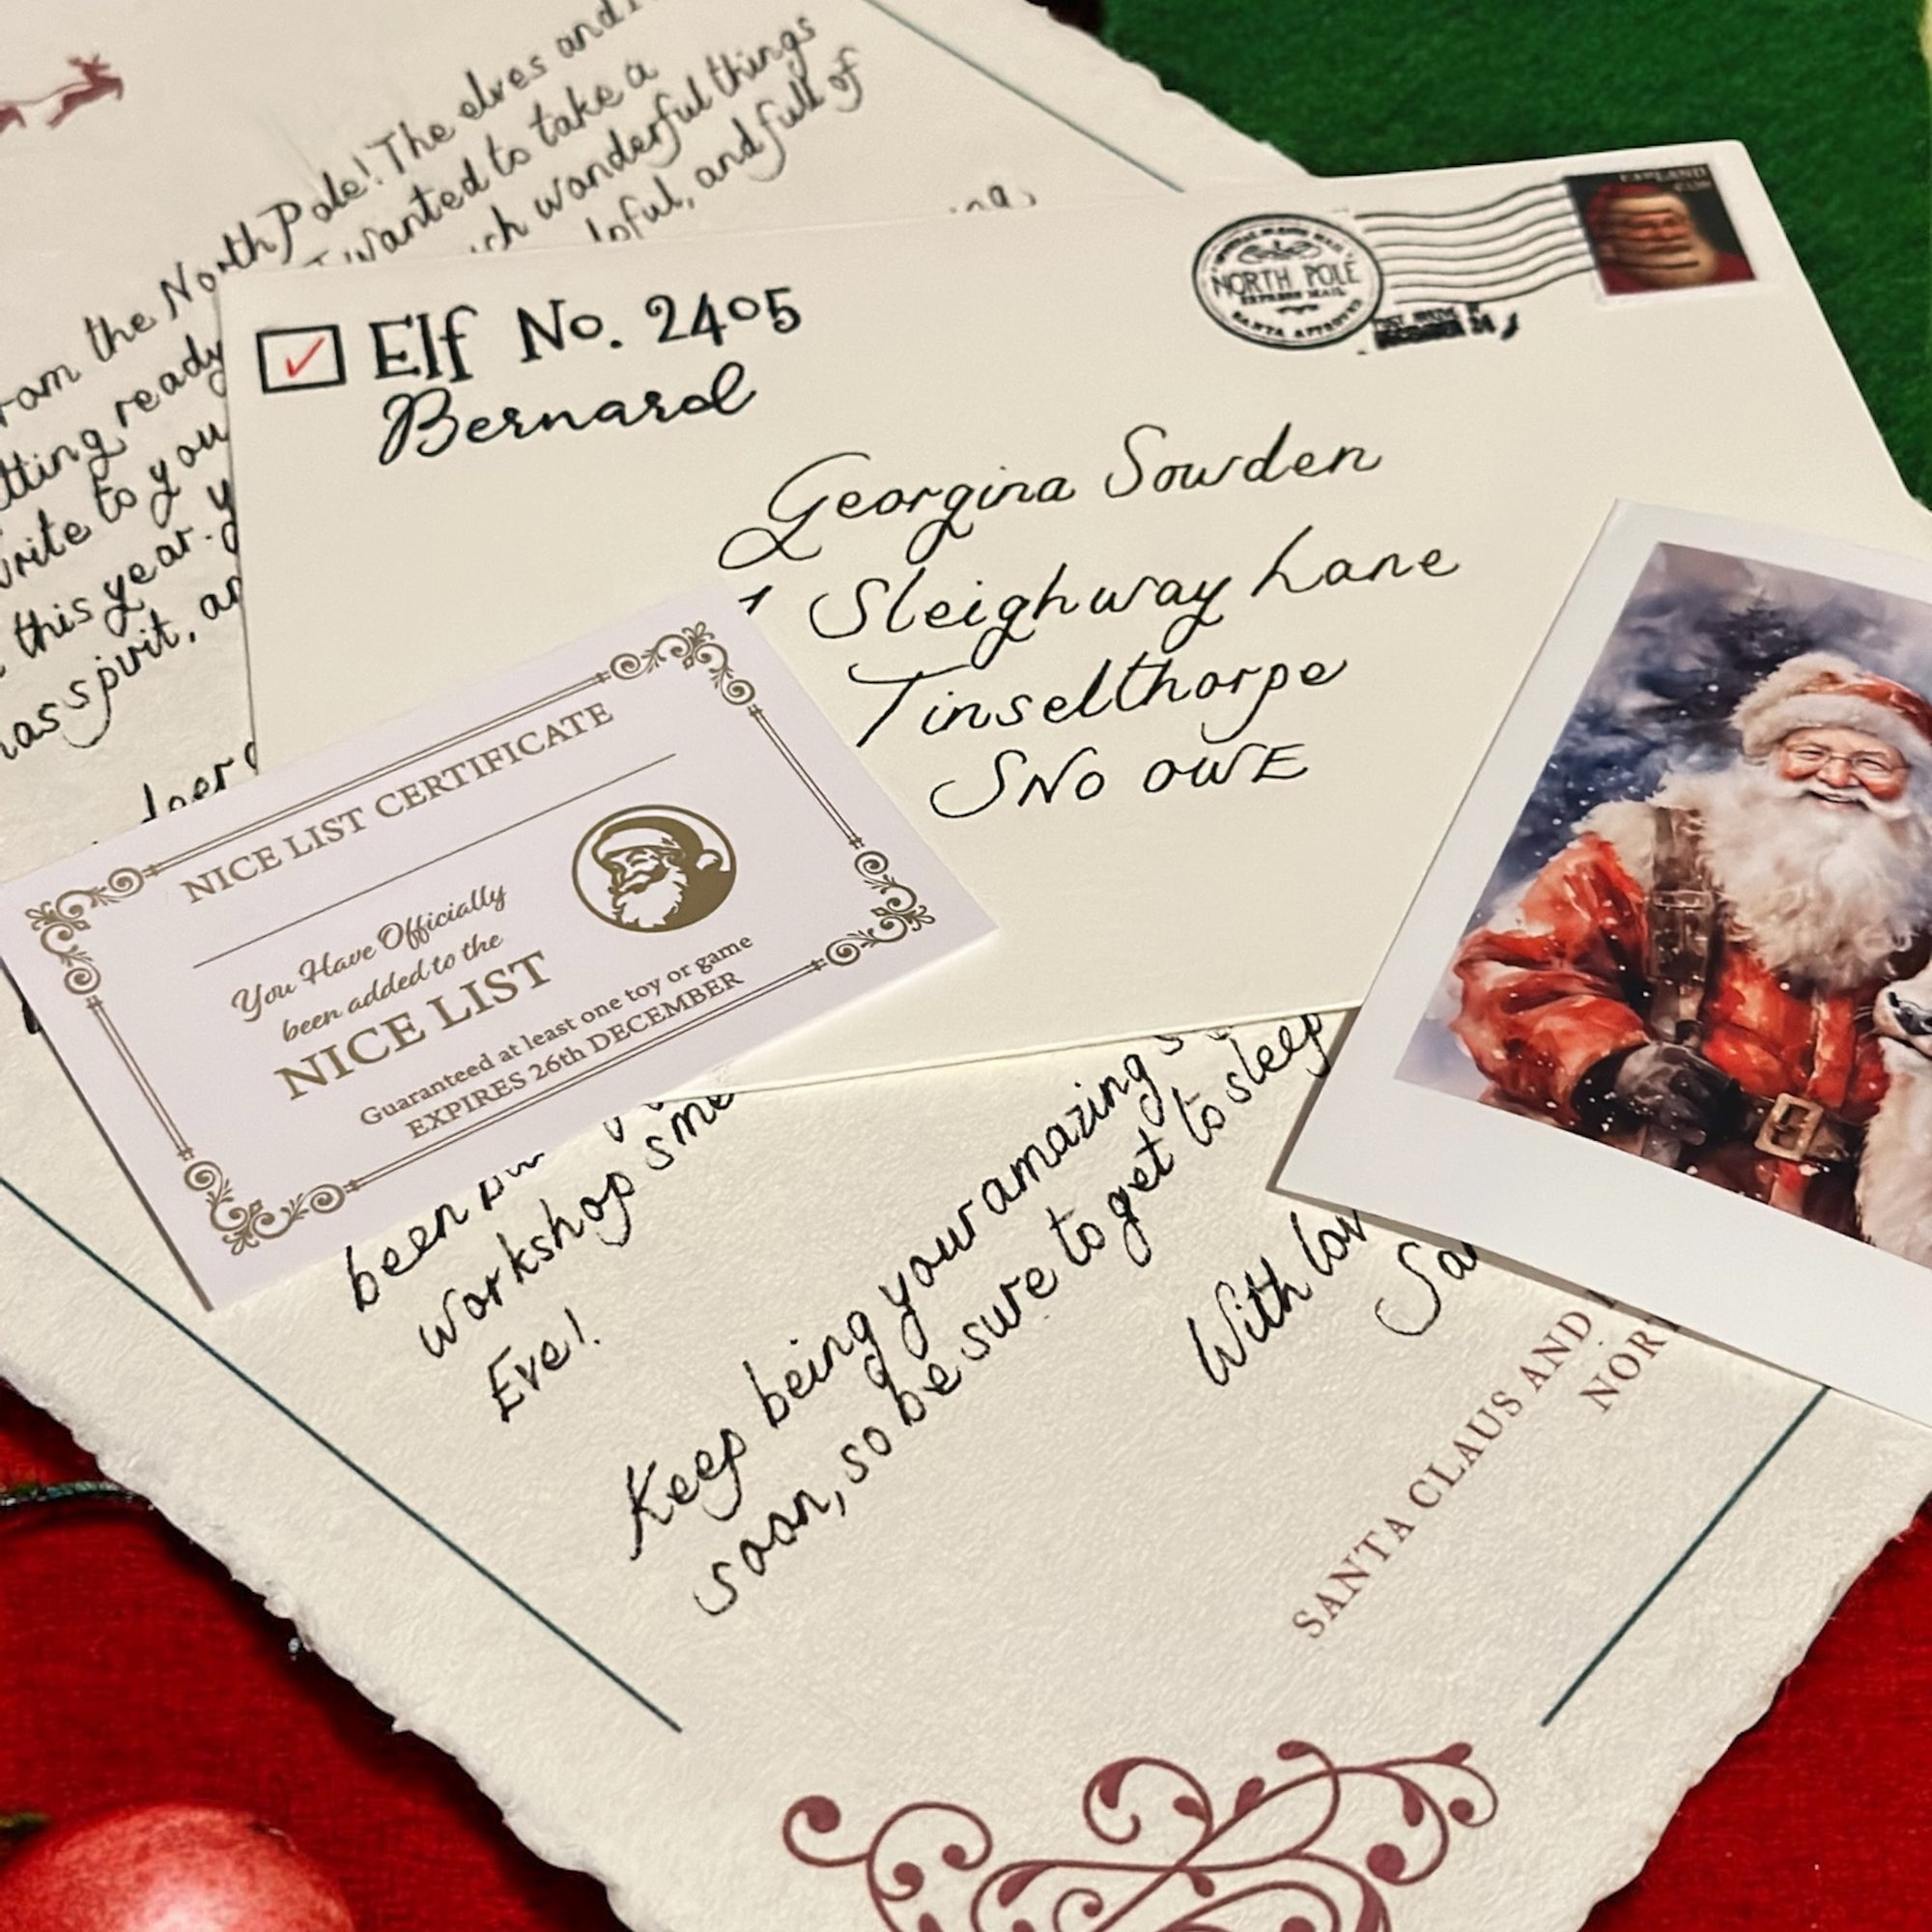 the elves and
from the North Pole! The elves and
getting ready I wanted to take a
write to you such wonderful things
this year. helpful, and full of
spirit,
Elf No. 2405
Bernard
NORTH POLE
EXPRESS MAIL
SANTA APPROVED
Georgina Sowden
1 Sleighway Lane
Tinselthorpe
SNO OWE
NICE LIST CERTIFICATE
You Have Officially
been added to the
NICE LIST
Guaranteed at least one toy or game
EXPIRES 26th DECEMBER
been
workshop
Eve!
Keep being your amazing
soon, so be sure to get to sleep
With
SANTA CLAUS AND